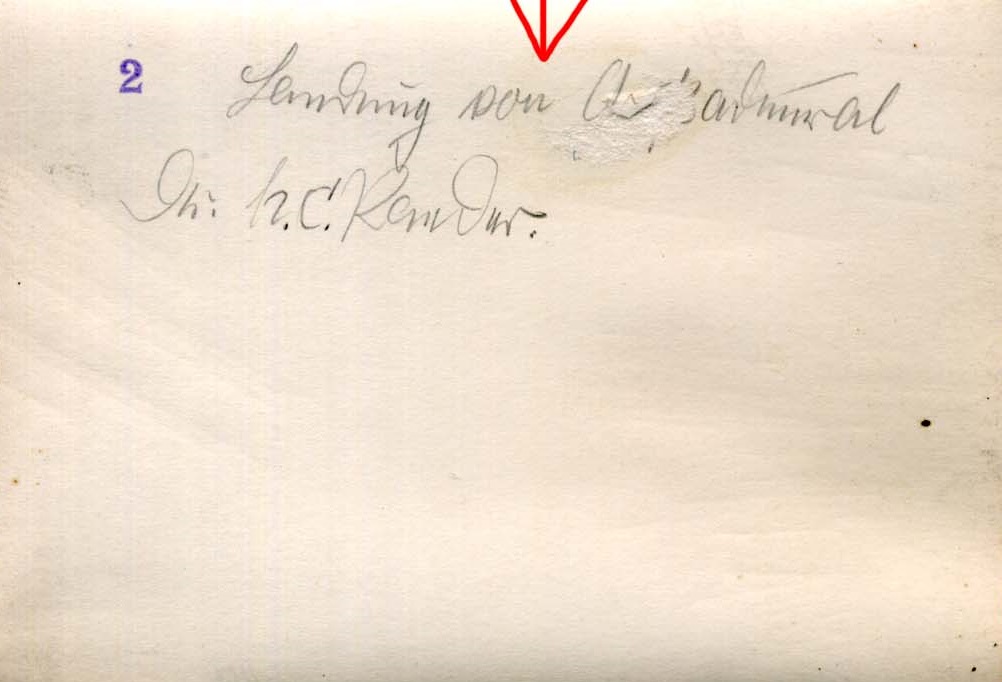 2 Landung von admiral
Dr. h.c. Raeder.